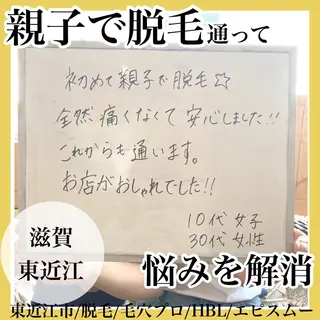 親子で脱毛通って
初めて親子で脱毛☆
全然痛くなくて安心しました!!
これからも通います。
お店がおしゃれでした!!
10代女子
30代女性
滋賀
東近江
悩みを解消
東近江市/脱毛/毛穴プロ/HBL/エピスムー